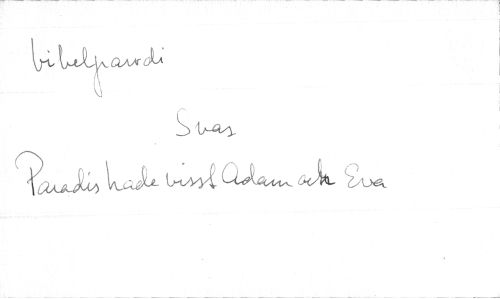 bibelparodi
Svas
Paradis hade visst Adam och Eva